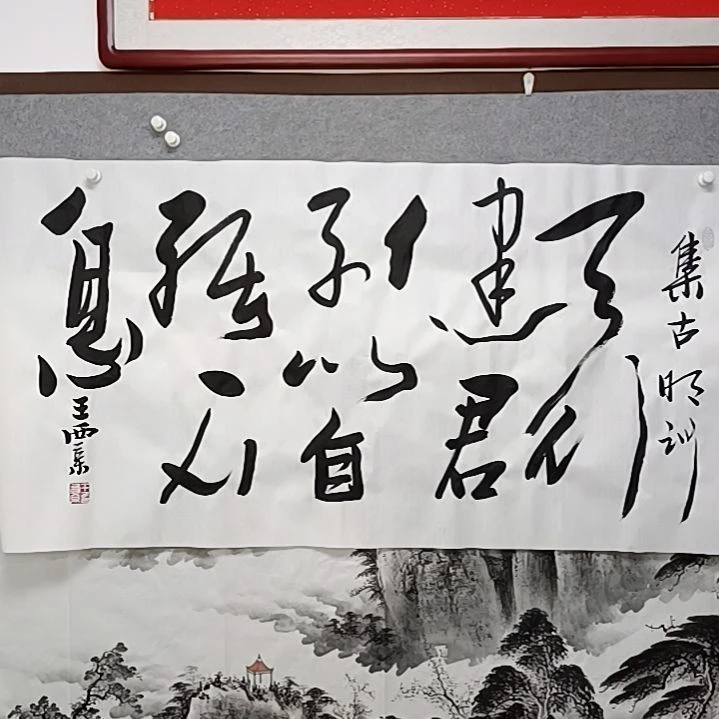 集古明训
天行
健君
子以自
强不
息
王